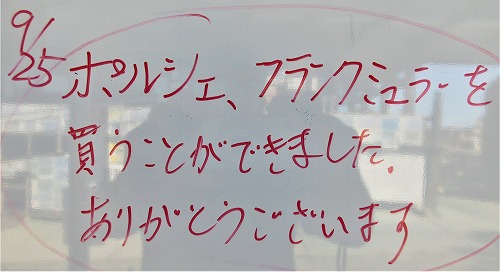 9/25 ポルシェ、フランクミュラーを
買うことができました。
ありがとうございます